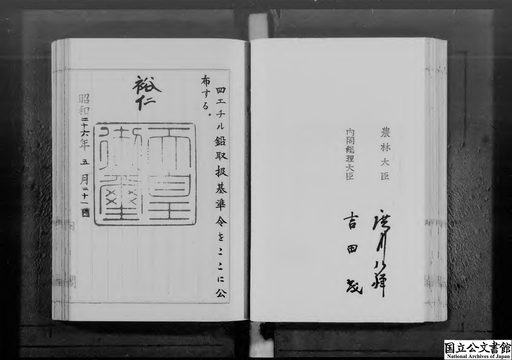 四エチル鉛取扱基準令をここに公
布する。
裕仁
天皇
御璽
昭和二十六年五月二十一日
農林大臣
廣川弘禪
内閣総理大臣
吉田茂
国立公文書館
National Archives of Japan